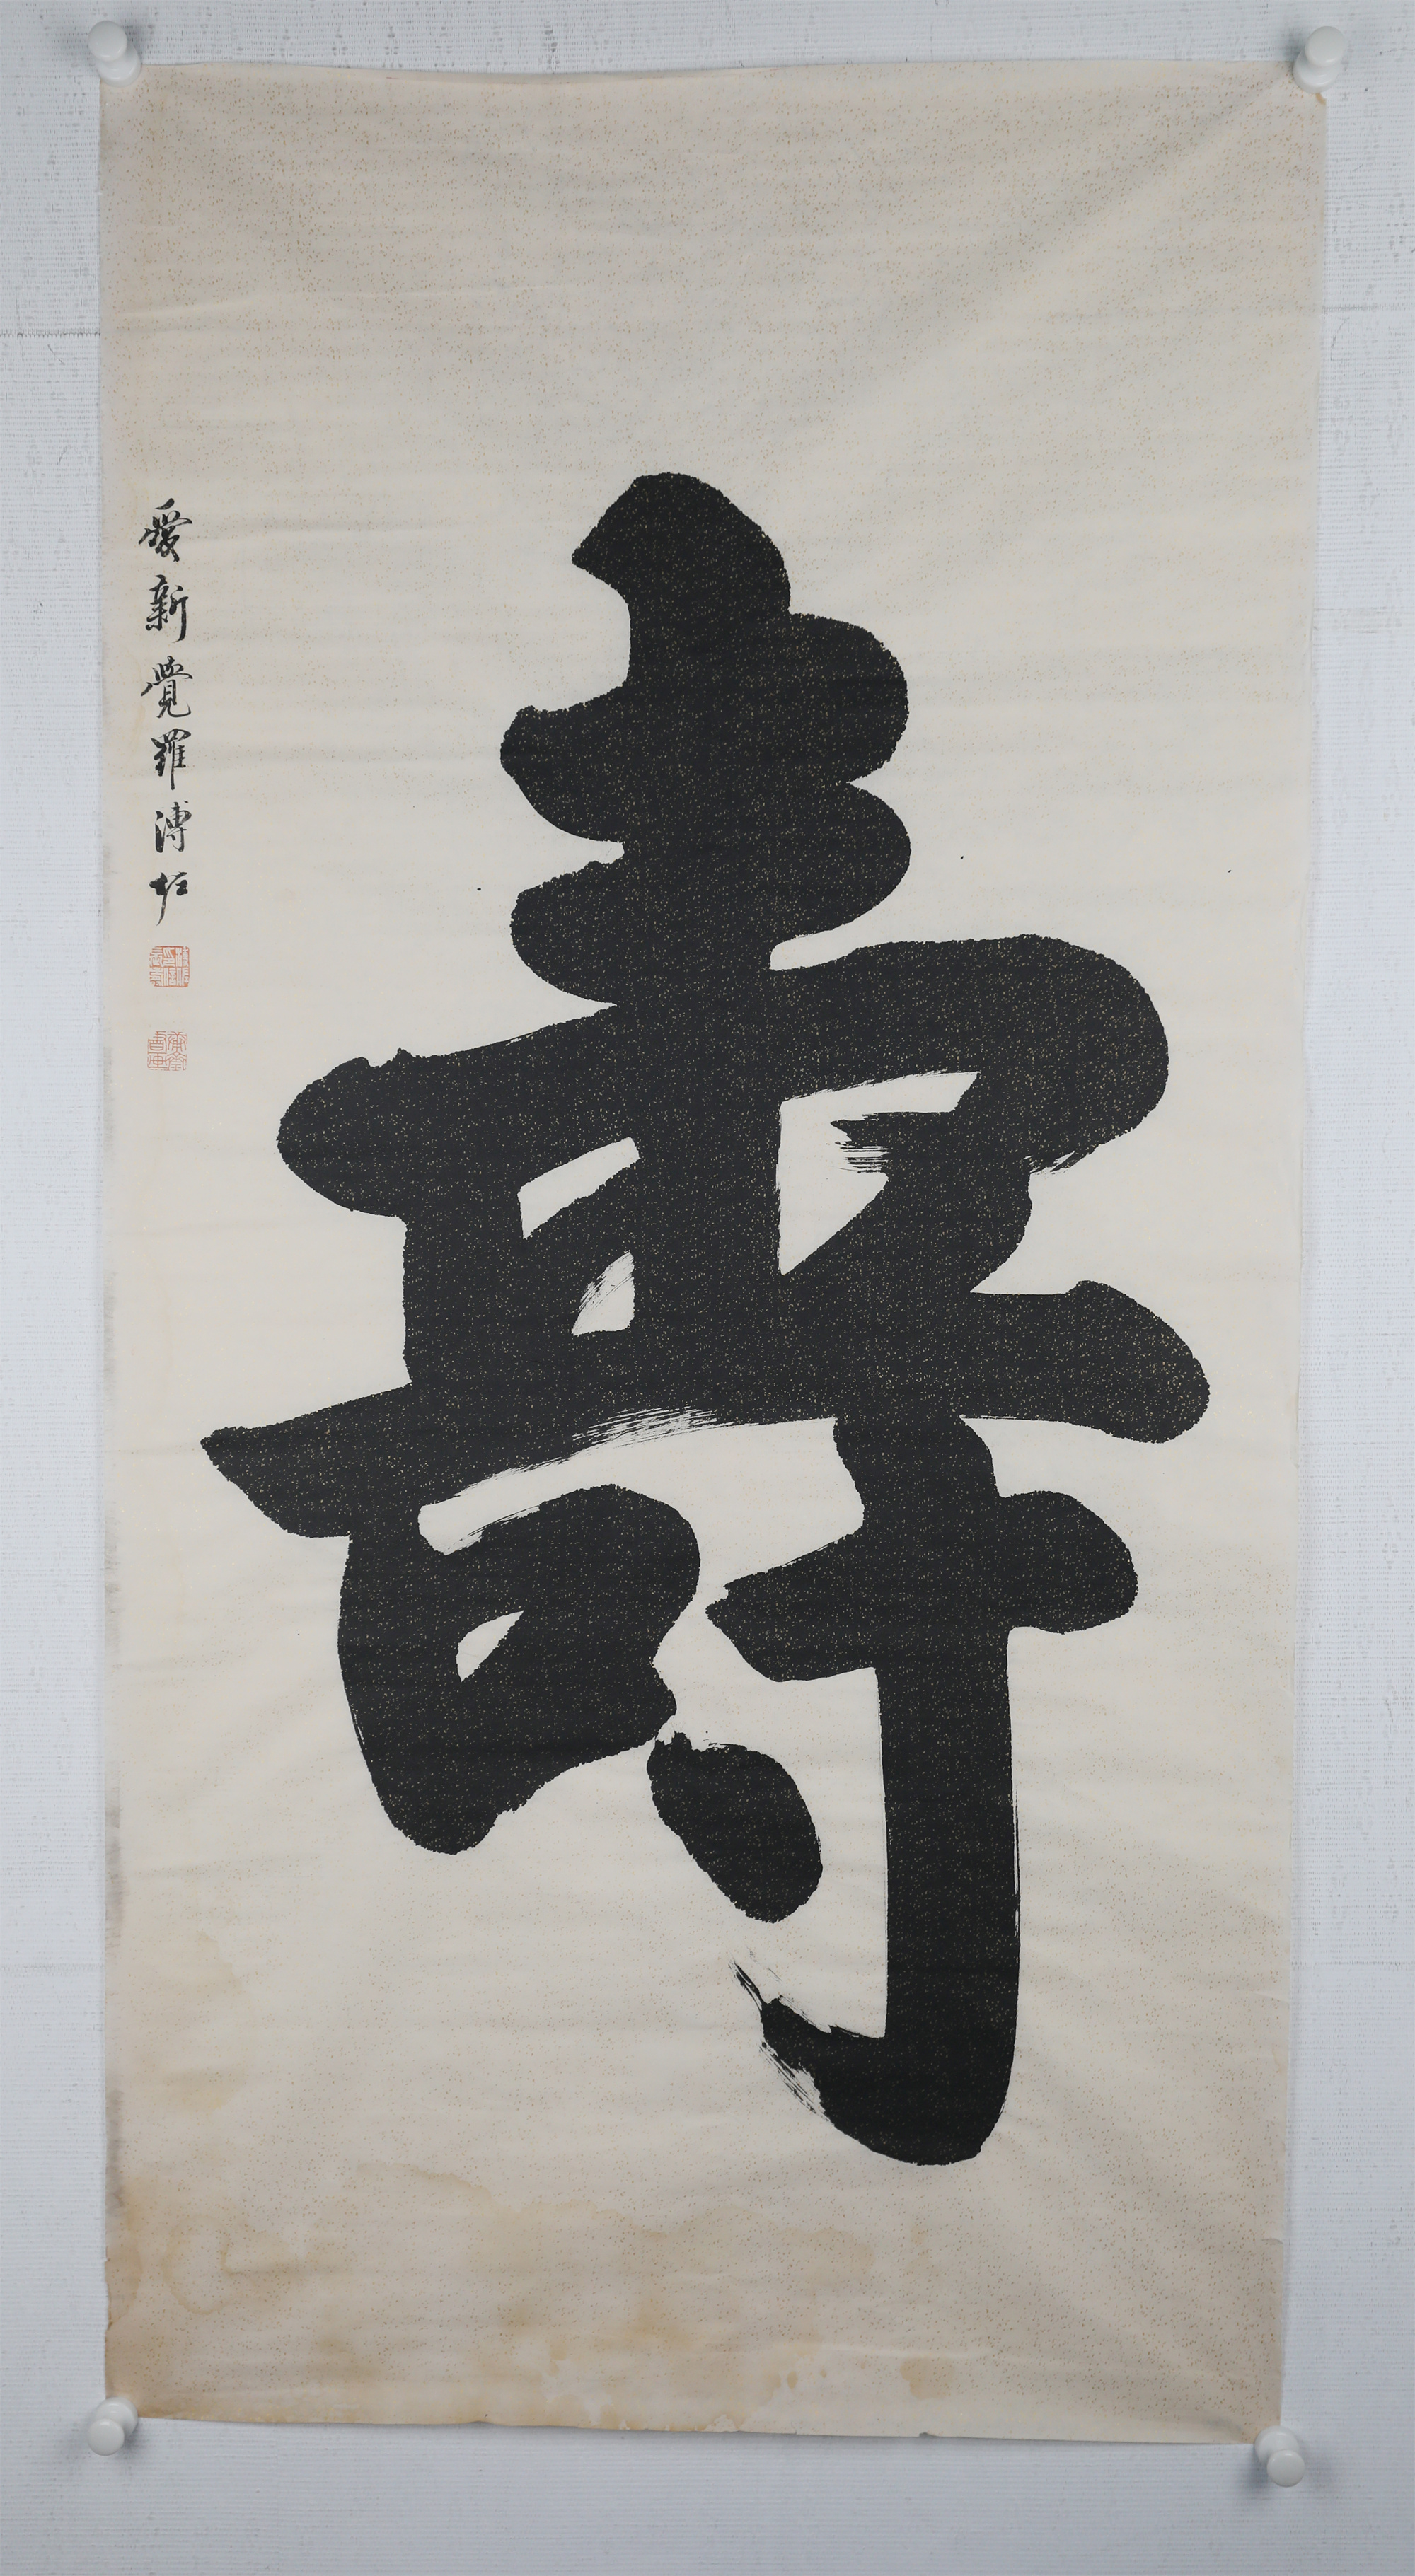 壽
愛新覺羅溥